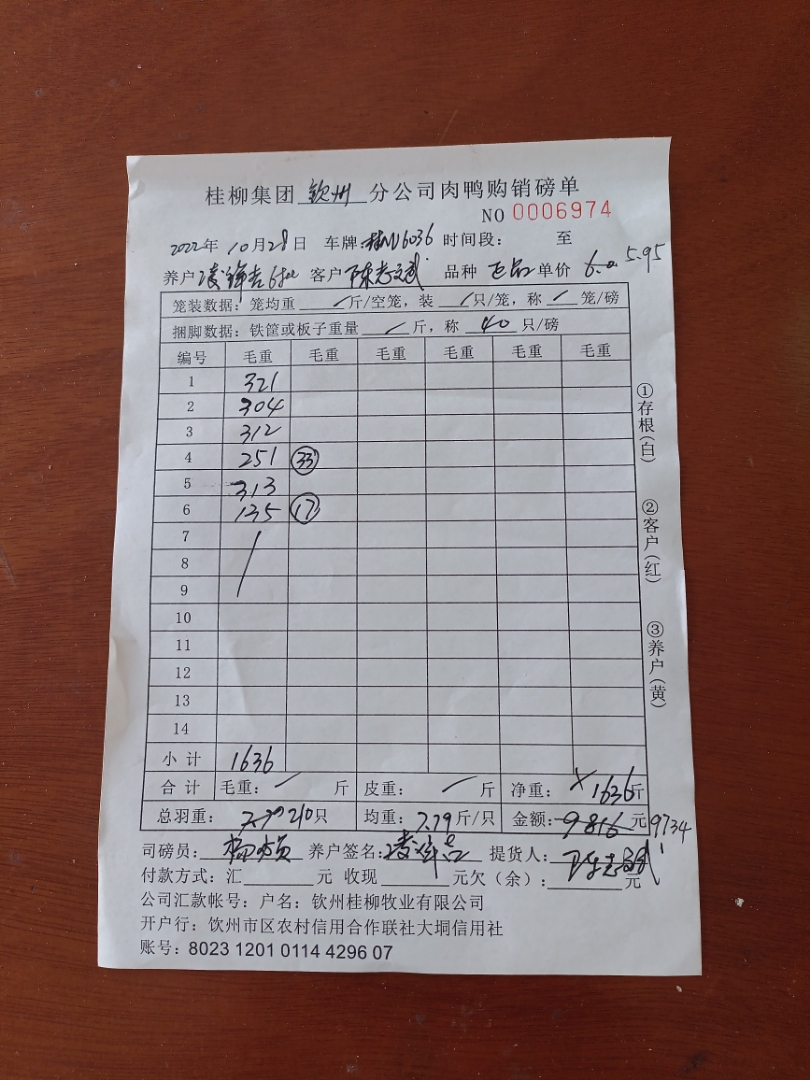 桂柳集团 钦州 分公司肉鸭购销磅单
NO 0006974
2022年 10月28日 车牌: 桂N16036 时间段: 至
养户 客户 陈志斌 品种 正品 单价 6.0 5.95
笼装数据: 笼均重 / 斤/空笼, 装 / 只/笼, 称 / 笼/磅
捆脚数据: 铁筐或板子重量 / 斤, 称 40 只/磅
编号 毛重 毛重 毛重 毛重 毛重 毛重
1 321
2 304
3 312
4 251 33
5 313
6 135 17
7
8
9
10
11
12
13
14
小计 1636
合计 毛重: / 斤 皮重: / 斤 净重: 1636斤
总羽重: 7.79 210只 均重: 7.79斤/只 金额: 9816元 9734
司磅员: 养户签名: 提货人:
付款方式: 汇 元 收现 元欠(余): 元
公司汇款帐号: 户名: 钦州桂柳牧业有限公司
开户行: 钦州市区农村信用合作联社大垌信用社
账号: 8023 1201 0114 4296 07
①存根(白)
②客户(红)
③养户(黄)